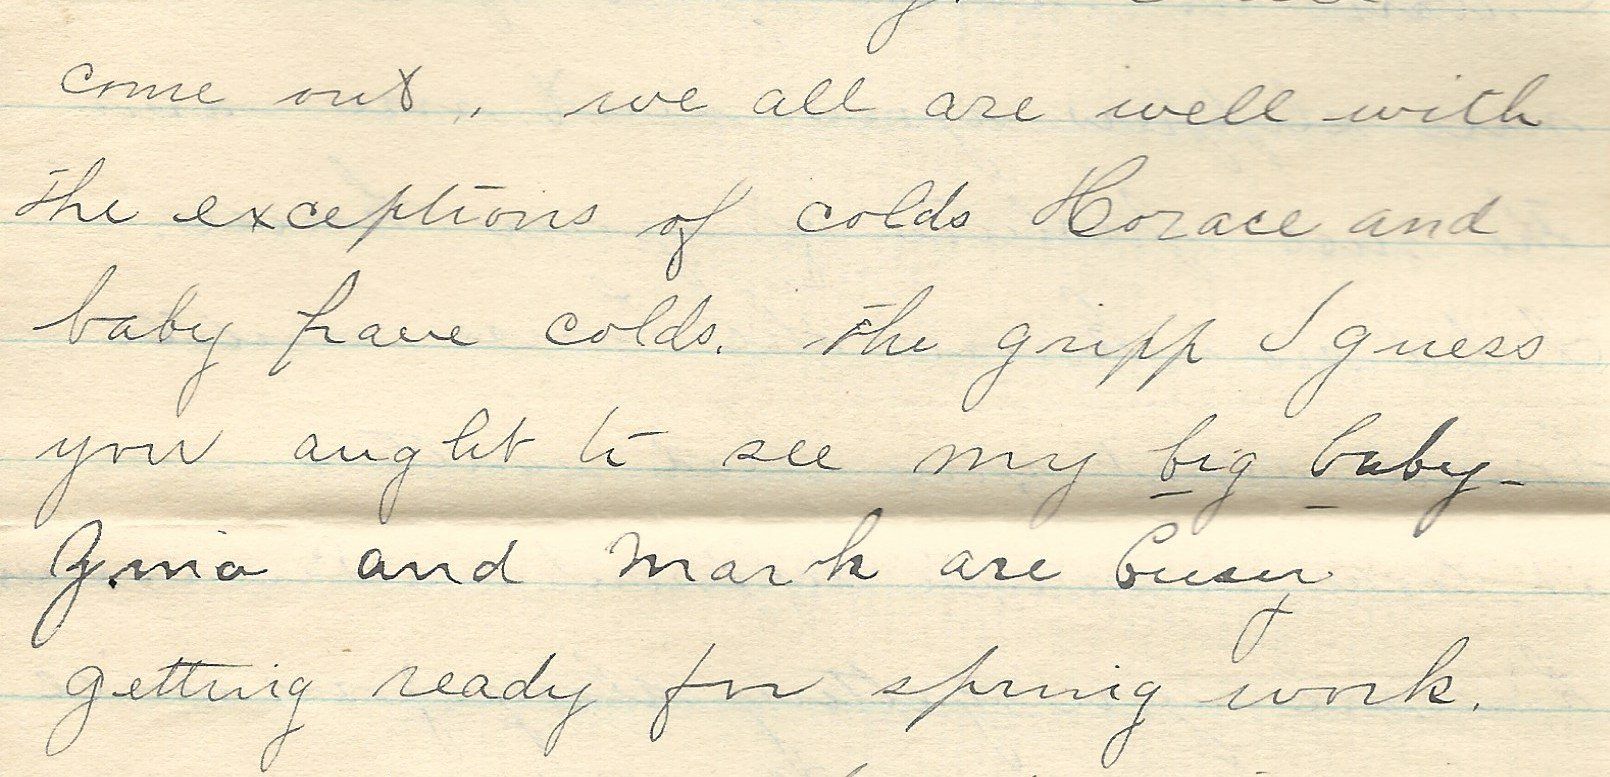 come out. we all are well with
the exceptions of colds Horace and
baby have colds. the gripp I guess
you aught to see my big baby-
and Mark are busy
getting ready for spring work.